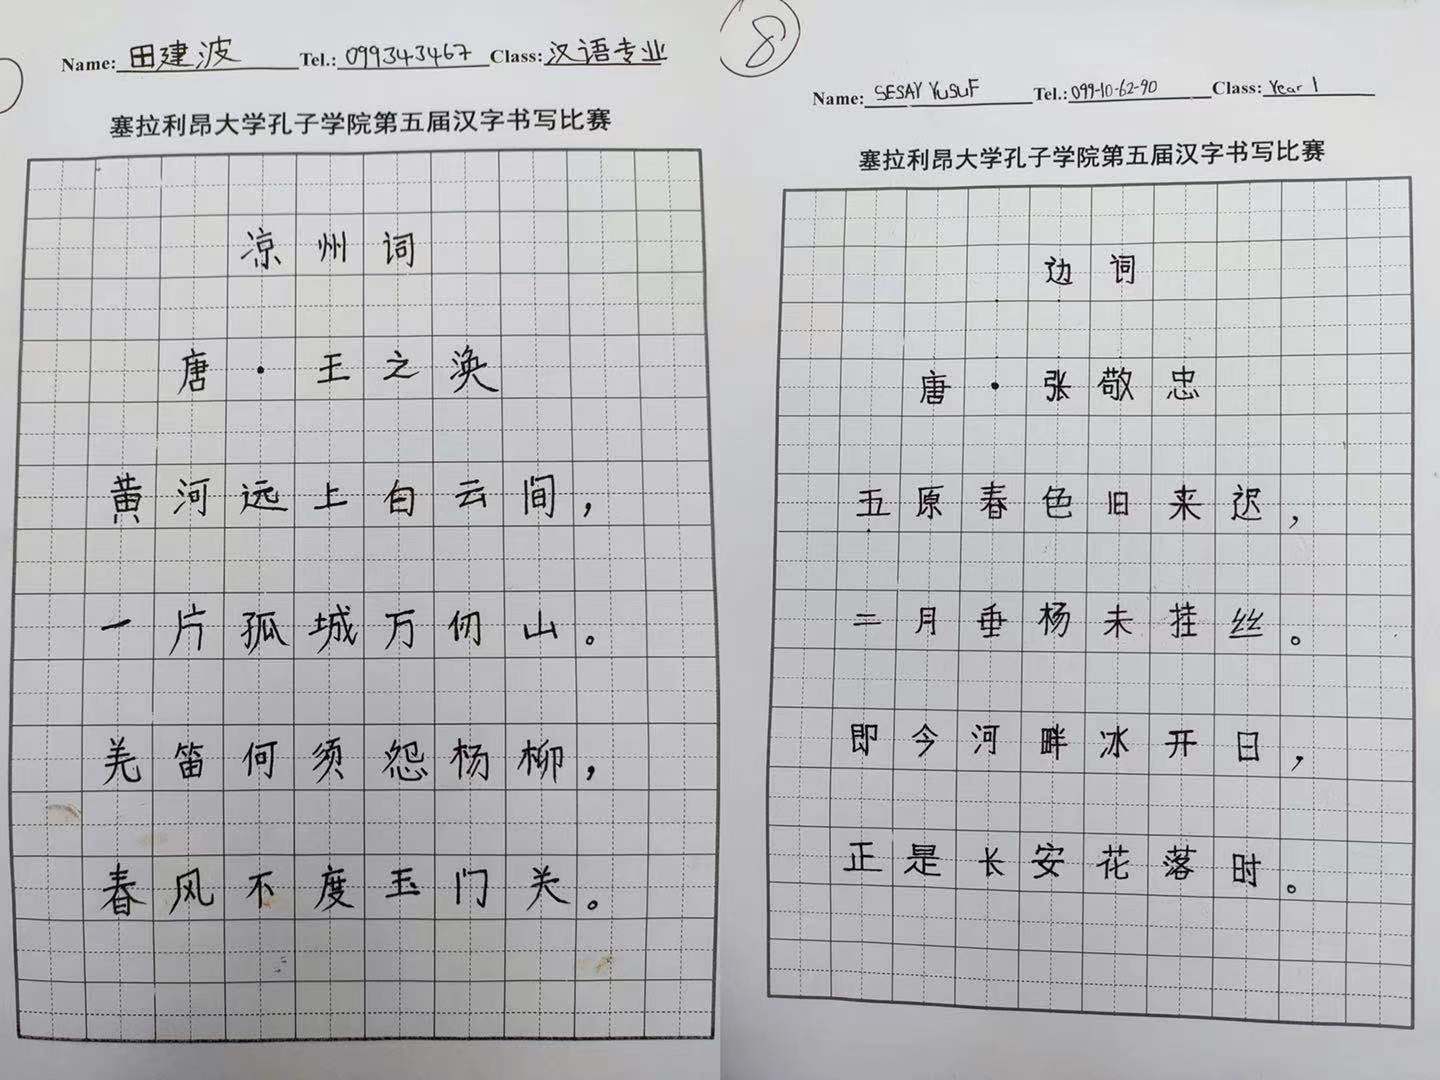 Name: 田建波 Tel.: 099343467 Class: 汉语专业
塞拉利昂大学孔子学院第五届汉字书写比赛
凉州词
唐·王之涣
黄河远上白云间，
一片孤城万仞山。
羌笛何须怨杨柳，
春风不度玉门关。
8
Name: SESAY YUSUF Tel.: 099-10-62-90 Class: Year 1
塞拉利昂大学孔子学院第五届汉字书写比赛
边词
唐·张敬忠
五原春色旧来迟，
二月垂杨未挂丝。
即今河畔冰开日，
正是长安花落时。